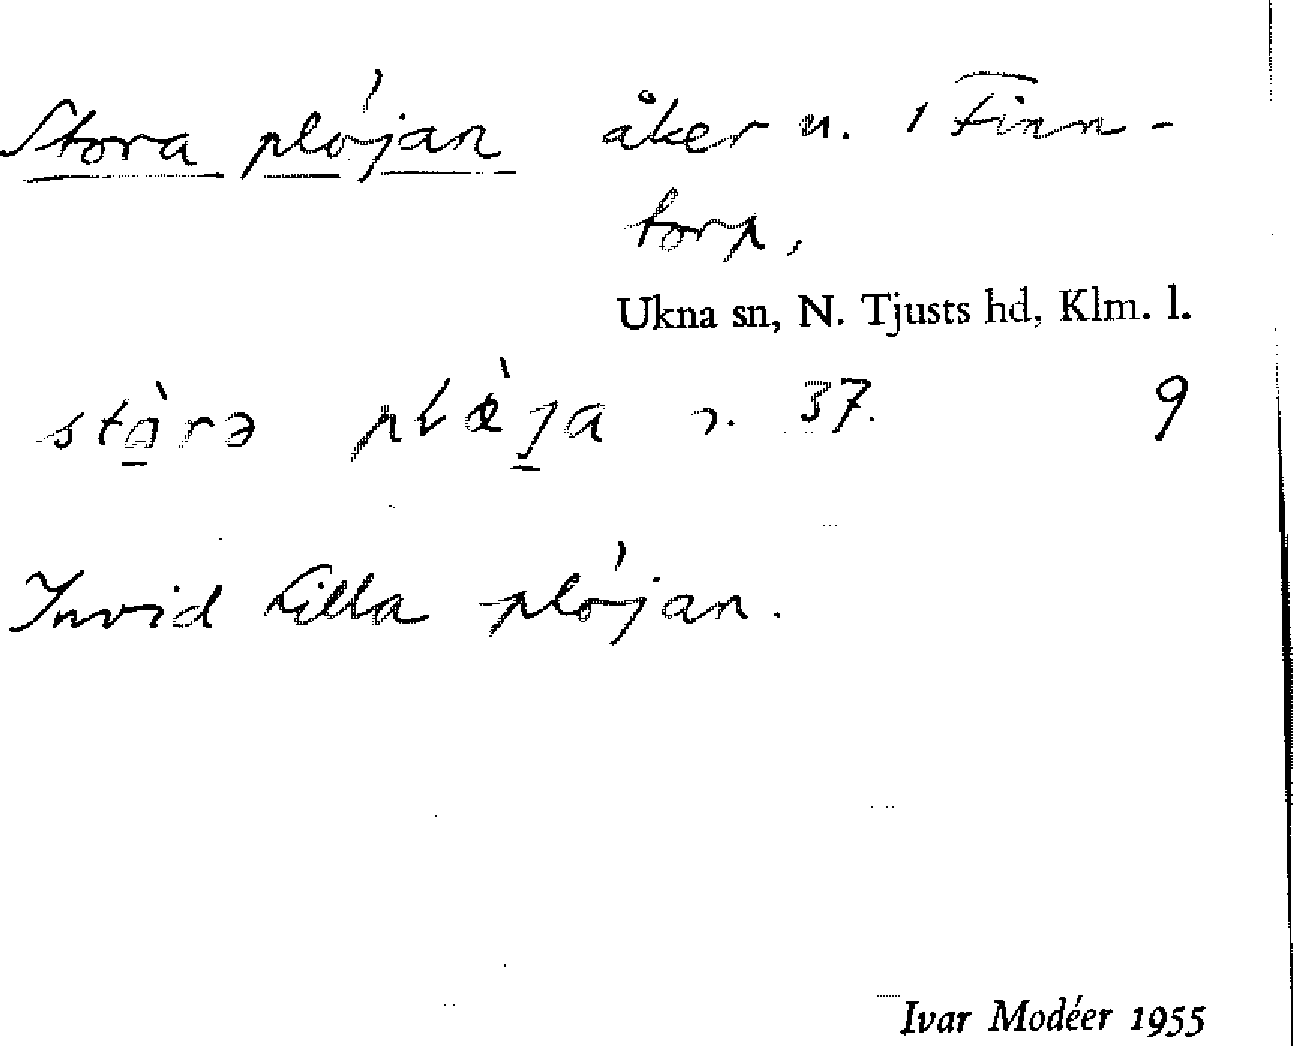 Stora plöjan åker n. 1 Finn-
torp,
Ukna sn, N. Tjusts hd, Klm. l.
37. 9
Invid Lilla plöjan.
Ivar Modéer 1955